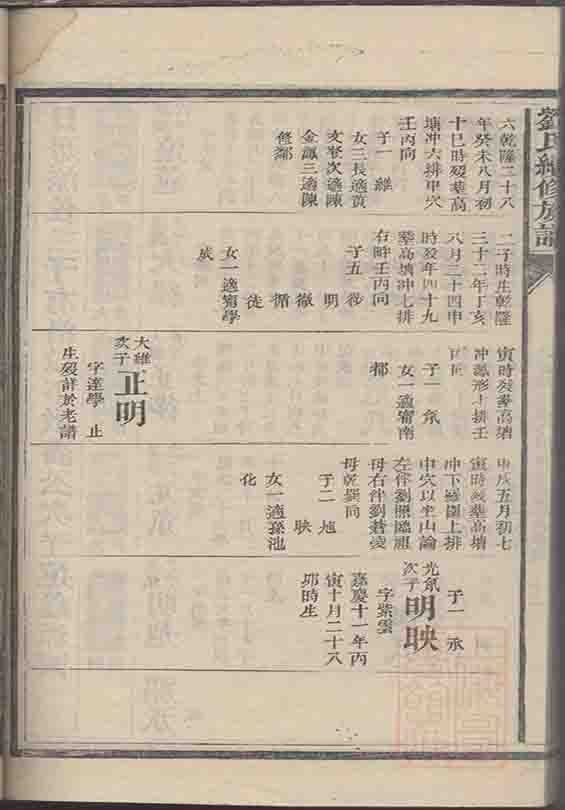 劉氏續修族譜
六乾隆二十八
年癸未八月初
十巳時歿葬高
塘冲六排甲穴
壬丙向
子一 維
女三長適黃
文登次適陳
金鳳三適陳
修鄰
二子時生乾隆
三十二年丁亥
八月二十四申
時歿年四十九
葬高塘冲七排
右畔壬丙向
子五 從
明
徹
循
徙
女一適甯學
成
寅時歿葬高塘
冲鳳形上排壬
丙向
子一 氛
女一適甯南
都
大維
次子
正明
字達學 止
生歿詳於老譜
甲戌五月初七
寅時歿葬高塘
冲下羅圍上排
申穴以坐山論
左伴劉照臨祖
母右伴劉蒼凌
母乾巽向
子二 旭
映
女一適孫池
化
子一 承
光氛
次子
明映
字紫雲
嘉慶十一年丙
寅十月二十八
卯時生